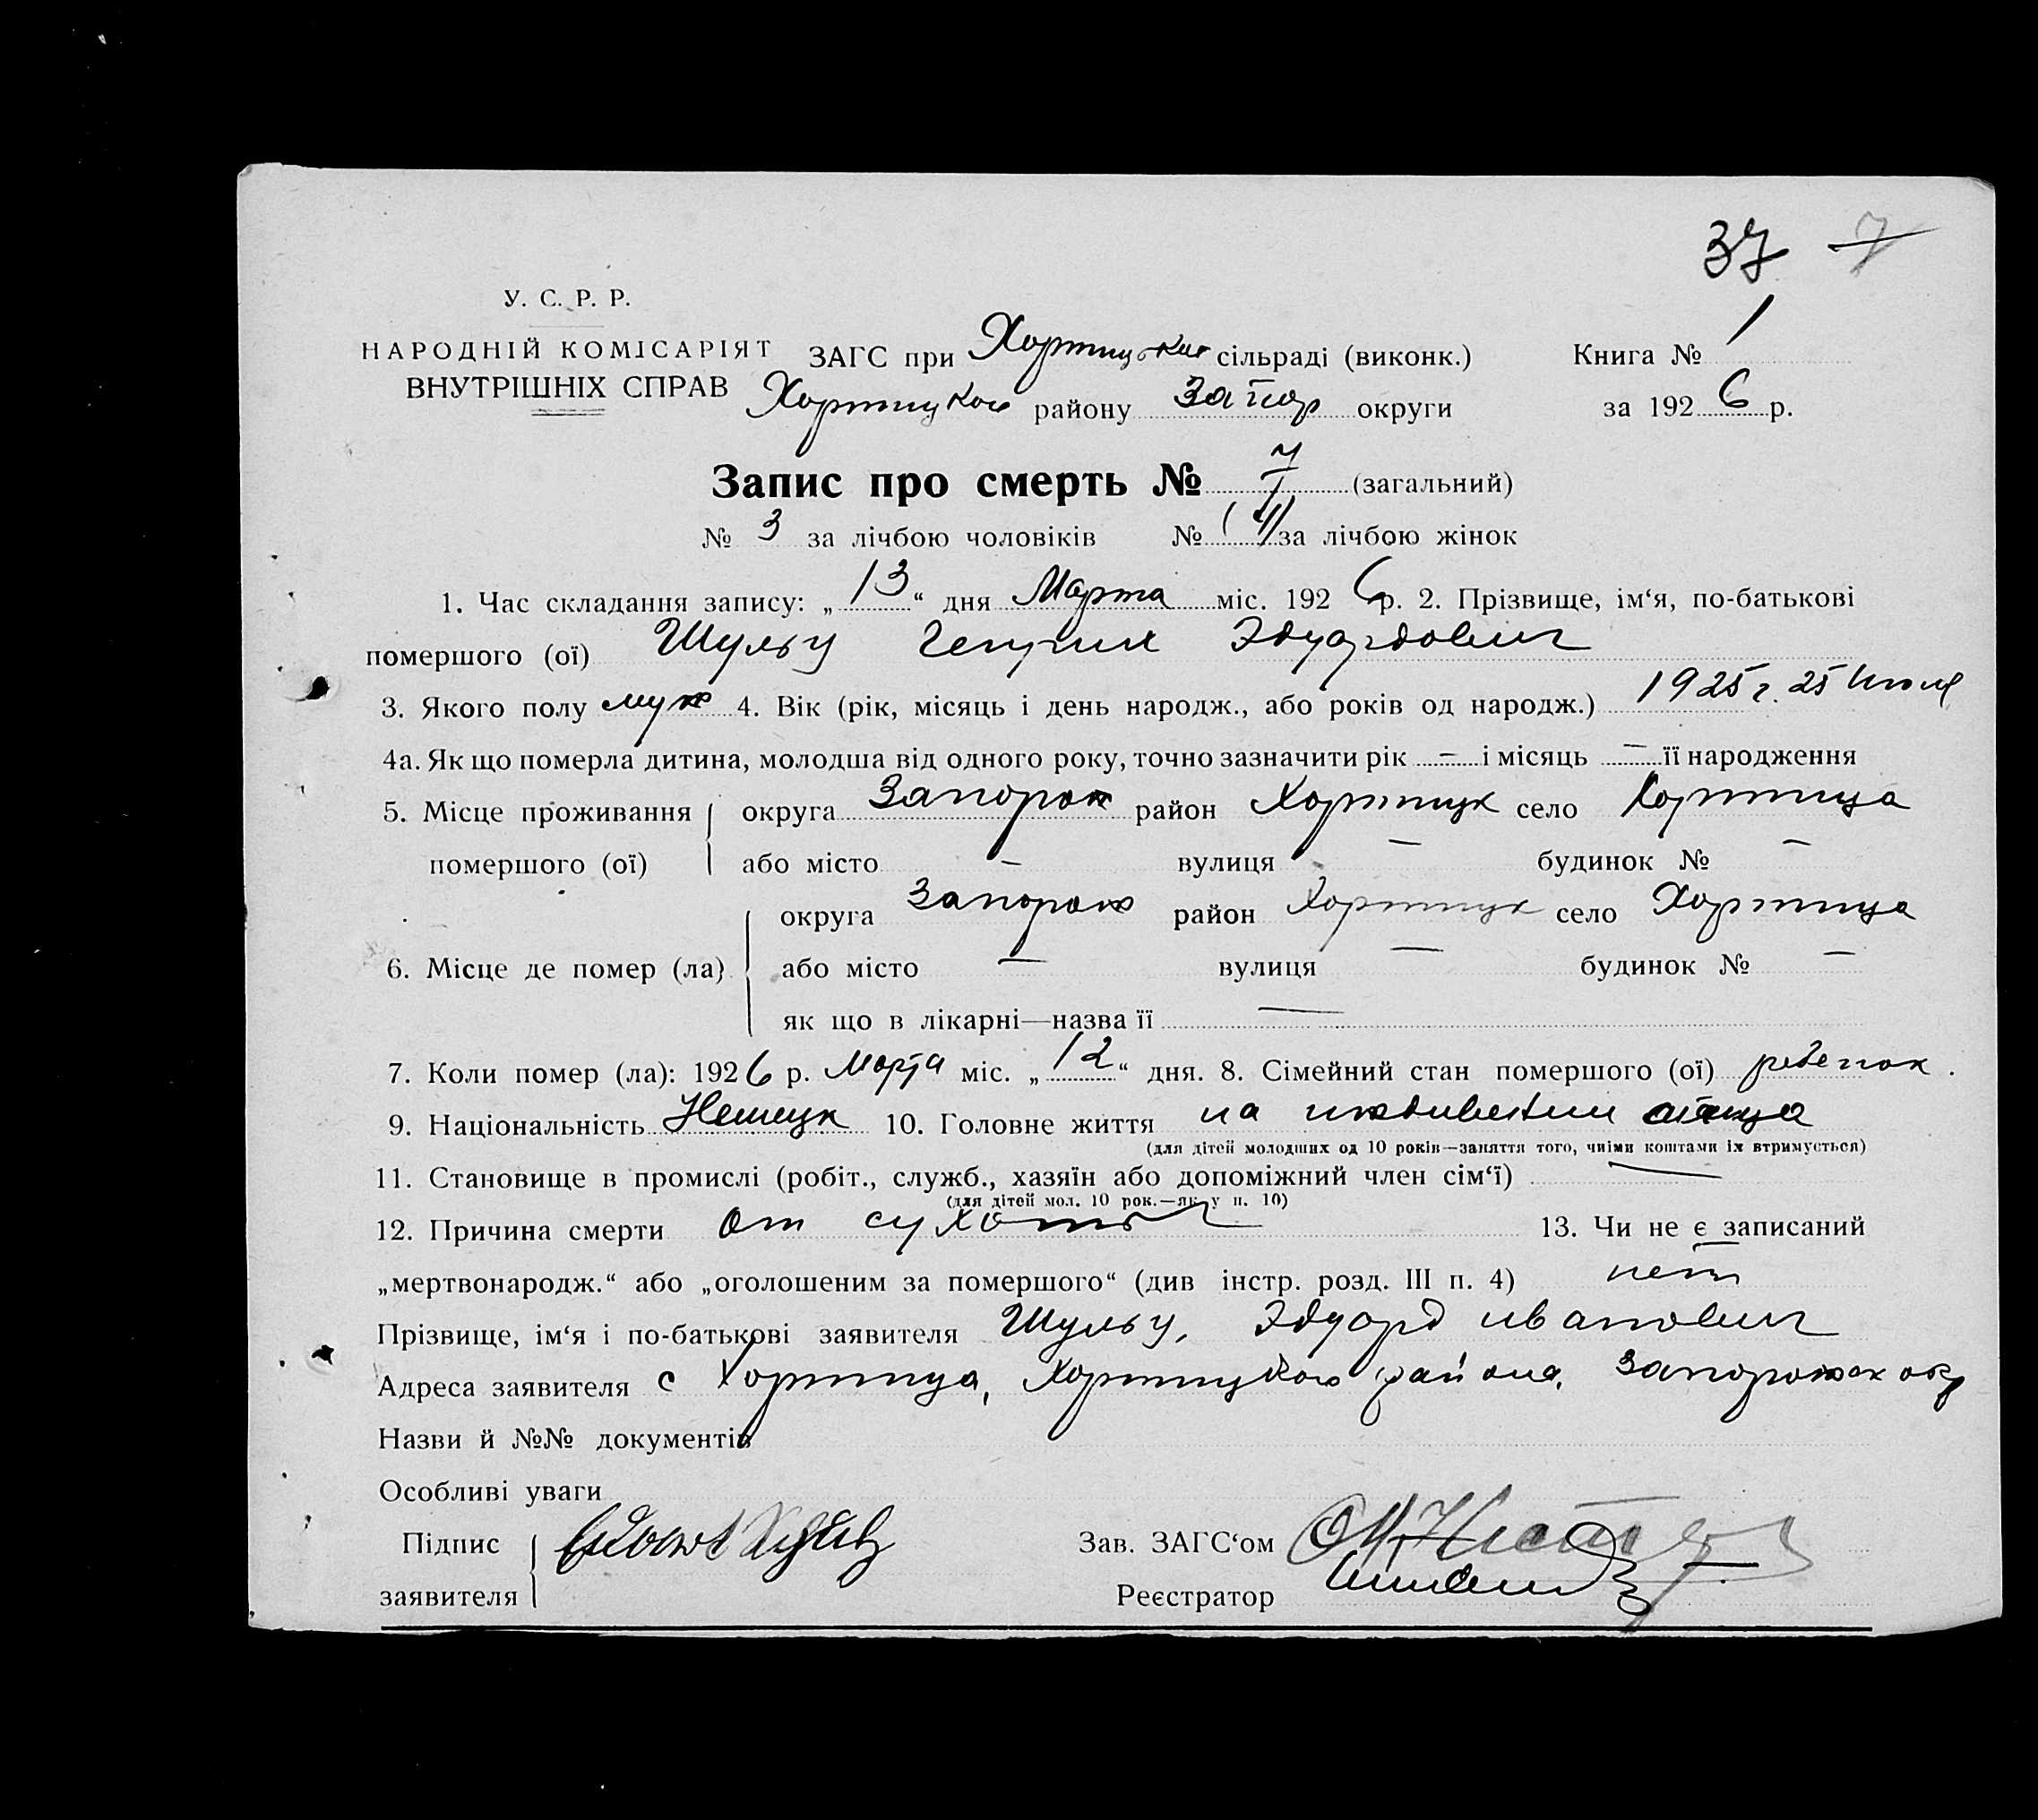 37 7
У. С. Р. Р.
НАРОДНІЙ КОМІСАРІЯТ ЗАГС при Хортицькой сільраді (виконк.) Книга № 1
ВНУТРІШНІХ СПРАВ Хортицкого району Запор округи за 1926 р.
Запис про смерть № 7 (загальний)
№ 3 за лічбою чоловіків № (4) за лічбою жінок
1. Час складання запису: „13“ дня Марта міс. 1926 р. 2. Прізвище, ім‘я, по-батькові
помершого (ої) Шульц Генрих Эдуардович
3. Якого полу муж 4. Вік (рік, місяць і день народж., або років од народж.) 1925 г. 25 Июля
4а. Як що померла дитина, молодша від одного року, точно зазначити рік — і місяць — її народження
5. Місце проживання округа Запорож район Хортицк село Хортица
помершого (ої) або місто — вулиця — будинок № —
округа Запорож район Хортицк село Хортица
6. Місце де помер (ла) або місто — вулиця — будинок № —
як що в лікарні—назва її —
7. Коли помер (ла): 1926 р. Марта міс. „12“ дня. 8. Сімейний стан помершого (ої) ребенок.
9. Національність Немецк 10. Головне життя на иждивении отца
(для дітей молодших од 10 років—заняття того, чиїми коштами їх втримується)
11. Становище в промислі (робіт., служб., хазяїн або допоміжний член сім‘ї) —
(для дітей мол. 10 рок.—як у п. 10)
12. Причина смерти От сухоты 13. Чи не є записаний
„мертвонародж.“ або „оголошеним за помершого“ (див інстр. розд. III п. 4) нет
Прізвище, ім‘я і по-батькові заявителя Шульц, Эдуард Иванович
Адреса заявителя с Хортица, Хортицкого района, Запорожск окр
Назви й №№ документів
Особливі уваги
Підпис Зав. ЗАГС‘ом
заявителя Реєстратор